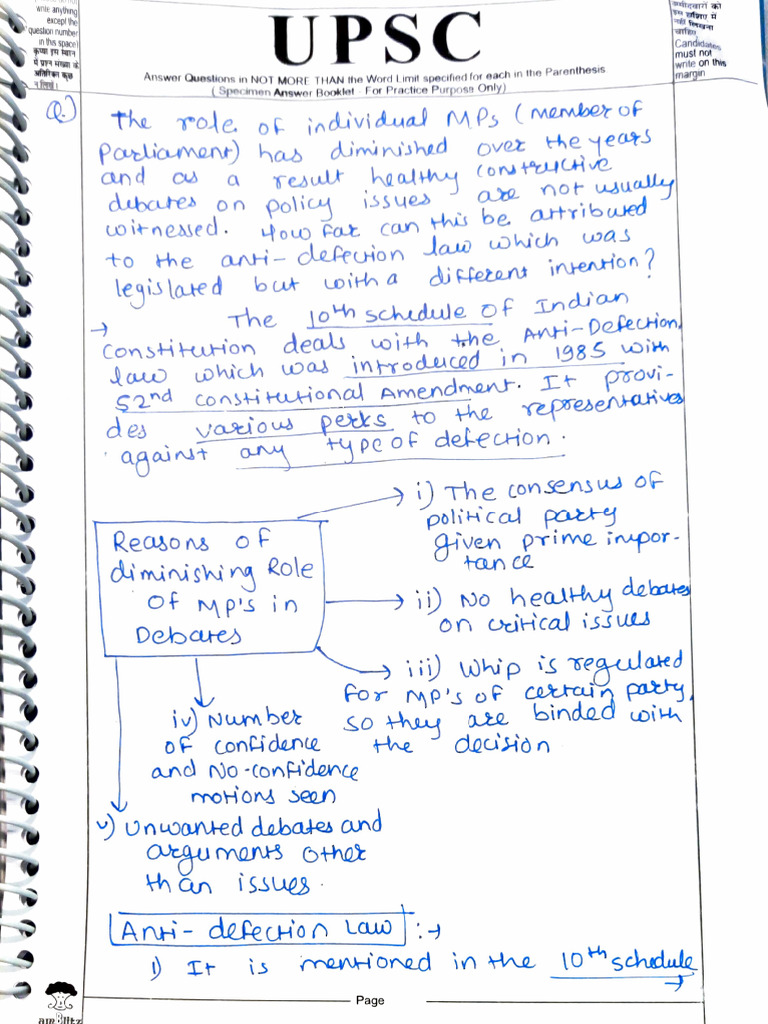 write anything
except the
question number
in this space)
कृपया इस स्थान
में प्रश्न संख्या के
अतिरिक्त कुछ
न लिखें।
UPSC
Answer Questions in NOT MORE THAN the Word Limit specified for each in the Parenthesis
( Specimen Answer Booklet - For Practice Purpose Only)
उम्मीदवारों को
इस हाशिए में
नहीं लिखना
चाहिए
Candidates
must not
write on this
margin
Q.)
The role of individual MPs (member of
Parliament) has diminished over the years
and as a result healthy constructive
debates on policy issues are not usually
witnessed. How far can this be attributed
to the anti-defection law which was
legislated but with a different intention?
→ The 10th schedule of Indian
Constitution deals with the Anti-Defection
law which was introduced in 1985 with
52nd constitutional Amendment. It provi-
des various perks to the representatives
against any type of defection.
Reasons of
diminishing Role
of MP's in
Debates
i) The consensus of
political party
given prime impor-
tance
ii) No healthy debates
on critical issues
iii) Whip is regulated
for MP's of certain party,
so they are binded with
the decision
iv) Number
of confidence
and No-confidence
motions seen
v) Unwanted debates and
arguments other
than issues.
Anti-defection Law :→
i) It is mentioned in the 10th schedule
→
Page
amBlitz